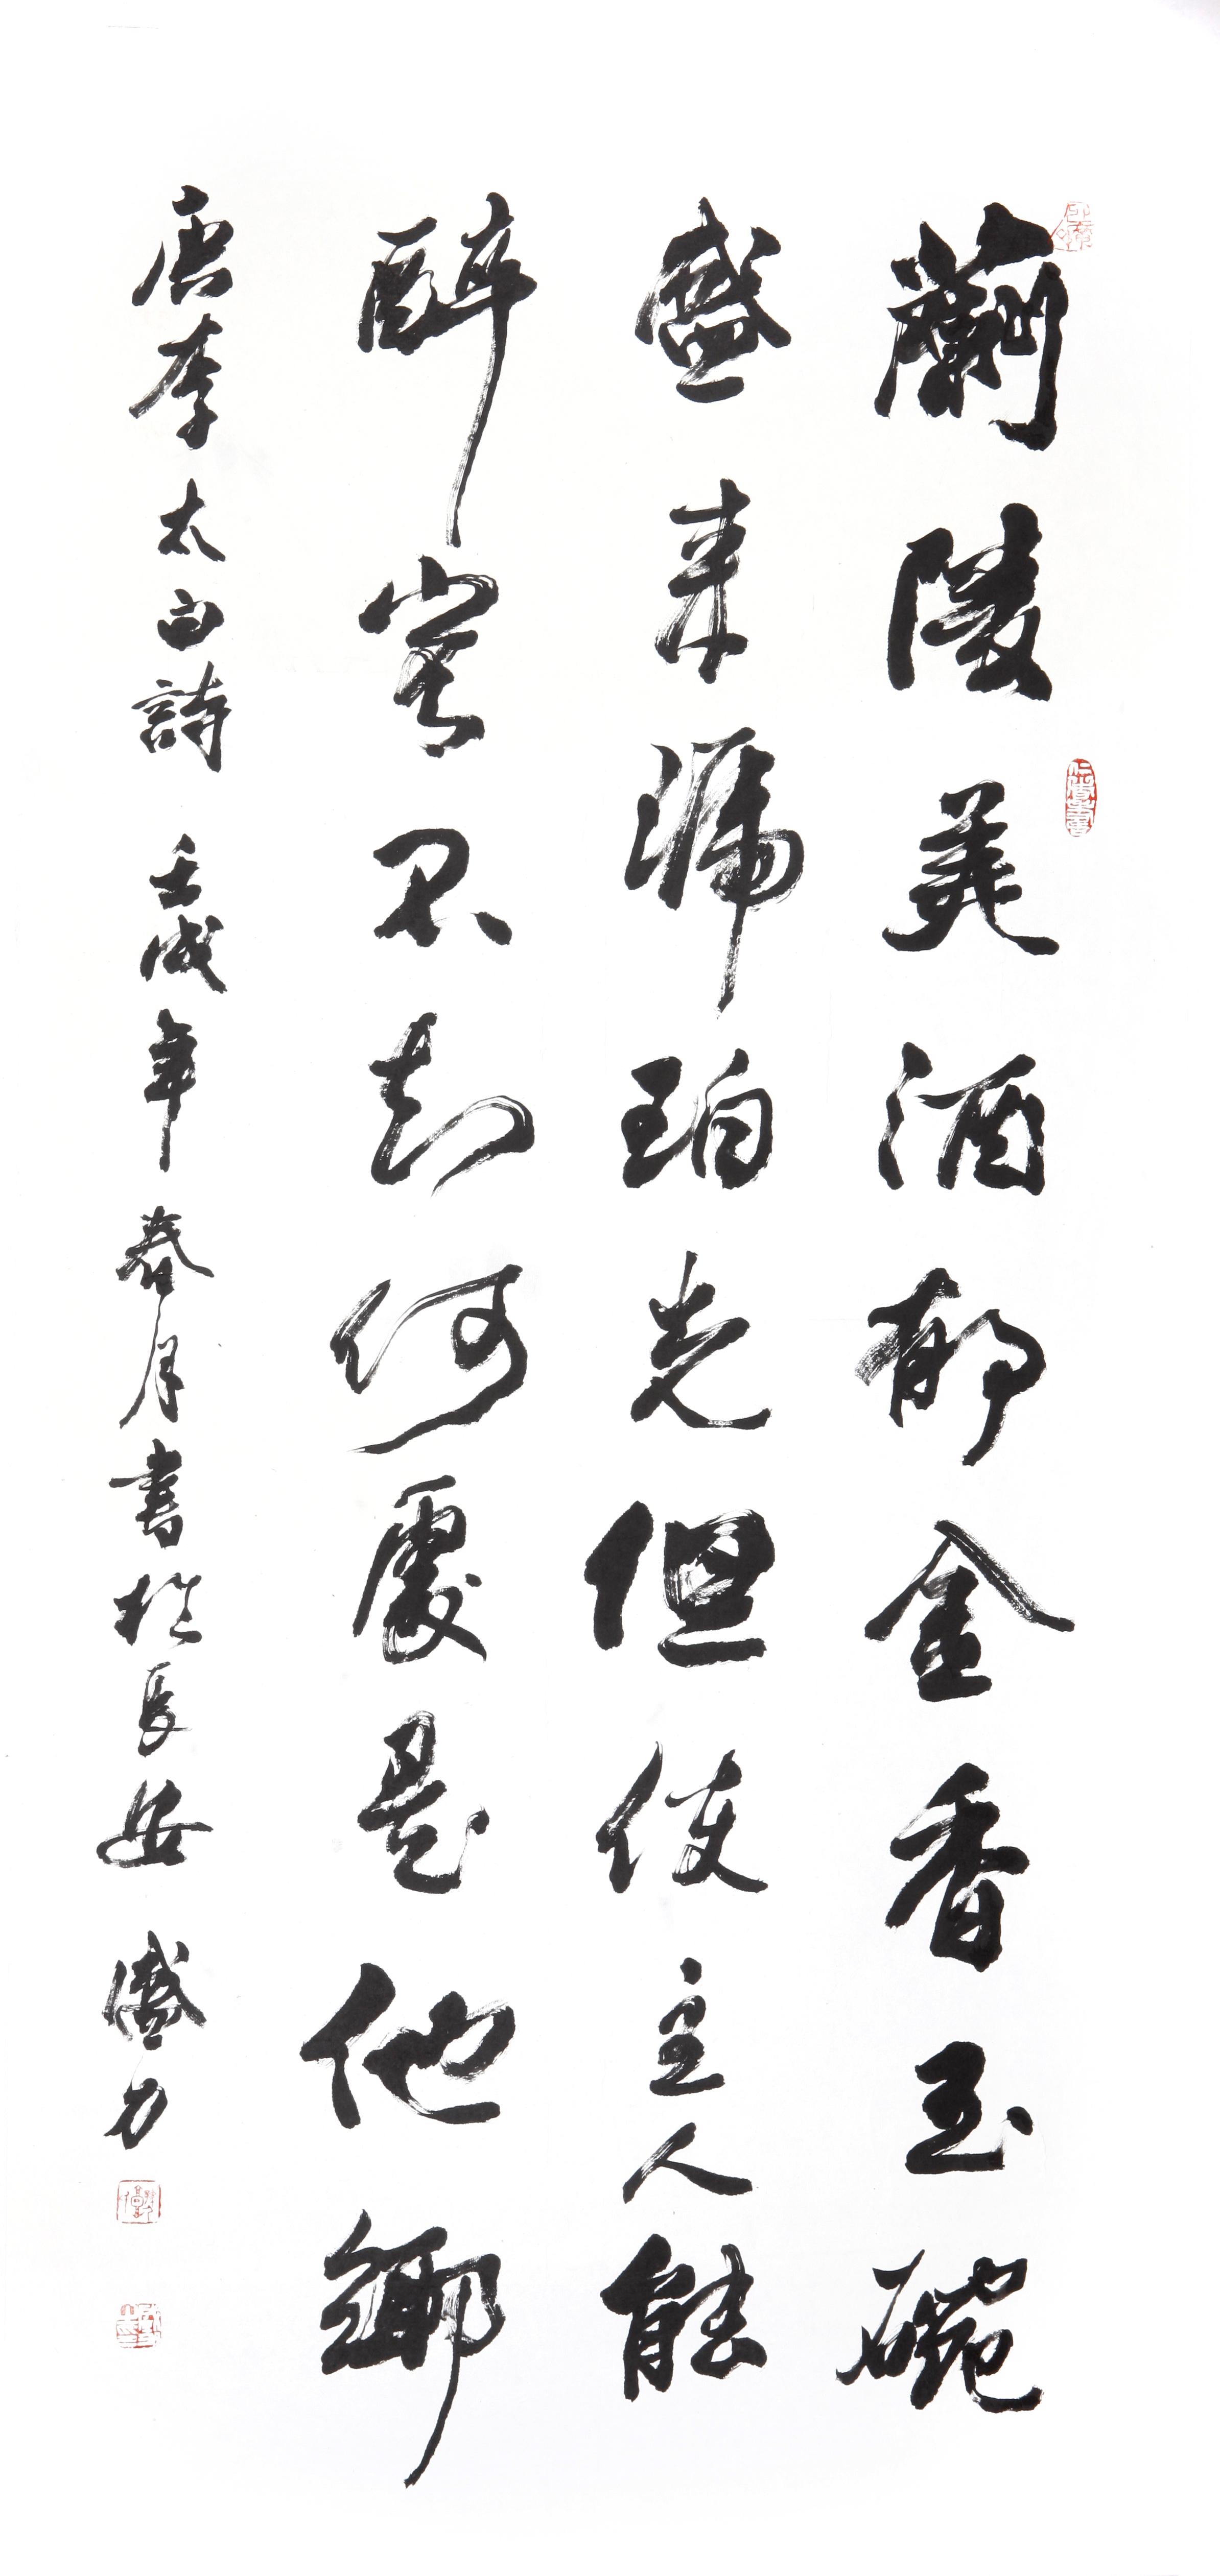 蘭陵美酒郁金香玉碗
盛来琥珀光但使主人能
醉客不知何處是他鄉
唐李太白詩 壬戌年春月書於長安